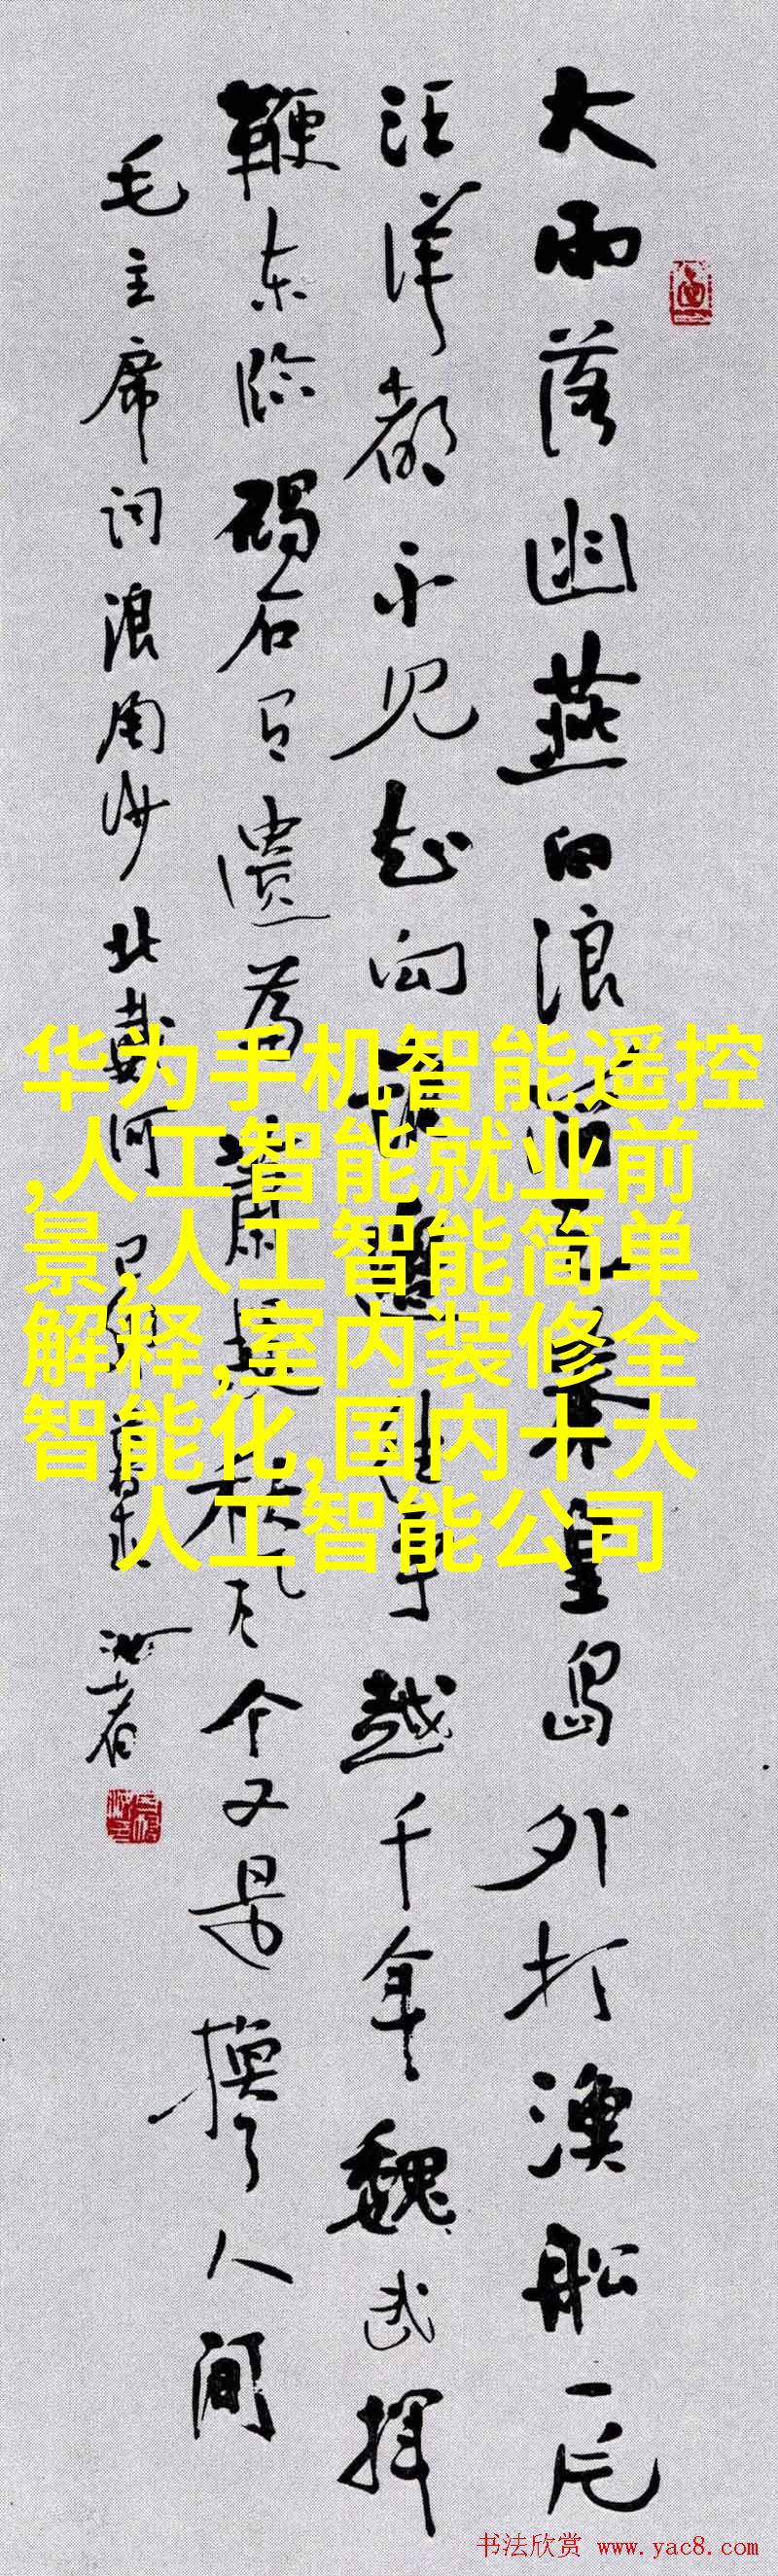 大雨落幽燕白浪滔天秦皇島外打漁船一片
汪洋都不見知向誰邊往事越千年魏武揮
鞭東臨碣石有遺篇蕭瑟秋風今又是換了人間
毛主席詞浪淘沙北戴河
华为手机智能遥控
,人工智能就业前
景,人工智能简单
解释,室内装修全
智能化,国内十大
人工智能公司
书法欣赏 www.yac8.com